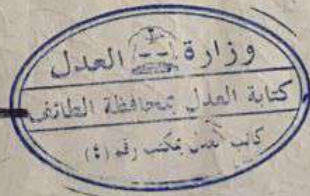 وزارة العدل
كتابة العدل بمحافظة الطائف
كاتب العدل بمكتب رقم (٤)